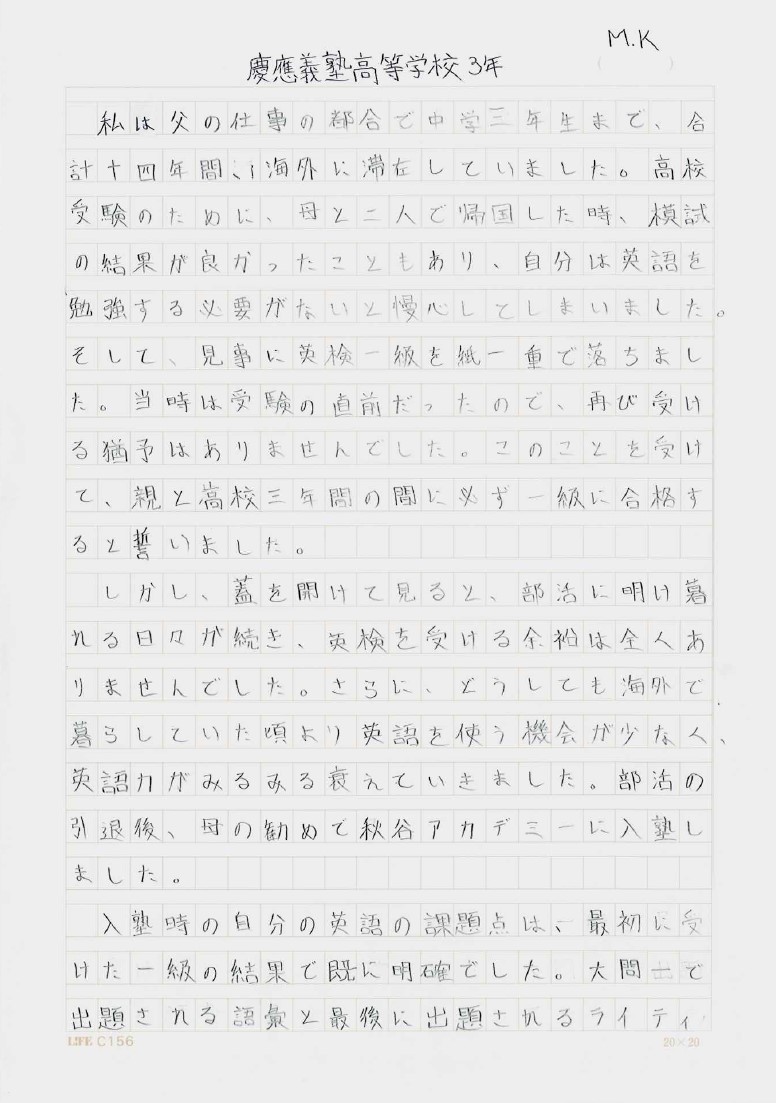 M.K
慶應義塾高等学校3年
私は父の仕事の都合で中学三年生まで、合
計十四年間、海外に滞在していました。高校
受験のために、母と二人で帰国した時、模試
の結果が良かったこともあり、自分は英語を
勉強する必要がないと慢心してしまいました。
そして、見事に英検一級を紙一重で落ちまし
た。当時は受験の直前だったので、再び受け
る猶予はありませんでした。このことを受け
て、親と高校三年間の間に必ず一級に合格す
ると誓いました。
しかし、蓋を開けて見ると、部活に明け暮
れる日々が続き、英検を受ける余裕は全くあ
りませんでした。さらに、どうしても海外で
暮らしていた頃より英語を使う機会が少なく、
英語力がみるみる衰えていきました。部活の
引退後、母の勧めで秋谷アカデミーに入塾し
ました。
入塾時の自分の英語の課題点は、最初に受
けた一級の結果で既に明確でした。大問一で
出題される語彙と最後に出題されるライティ
LIFE C156
20×20